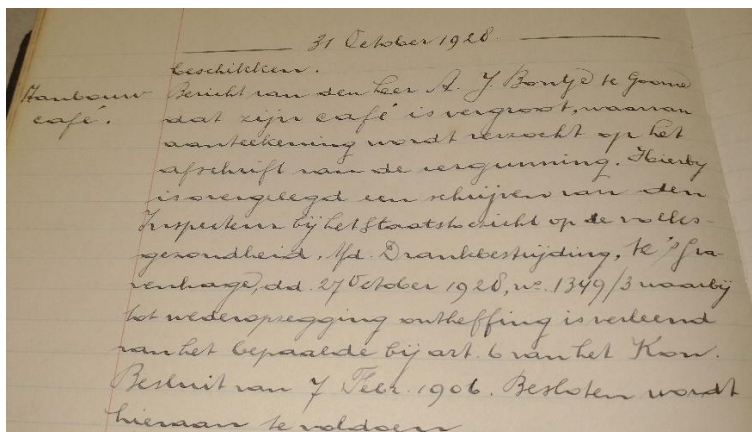 31 October 1928.
beschikken.
Aanbouw café.
Bericht van den heer A. J. Bontje te Goome
dat zijn café is vergroot, waarvan
aanteekening wordt verzocht op het
afschrift van de vergunning. Hierbij
is overgelegd een schrijven van den
Inspecteur bij het Staatstoezicht op de volks-
gezondheid, t/d. Drankbestrijding, te 's Gra-
venhage, dd. 27 October 1928, no. 1349/3 waarbij
tot wederopzegging ontheffing is verleend
van het bepaalde bij art. 6 van het Kon.
Besluit van 7 Febr. 1906. Besloten wordt
hieraan te voldoen